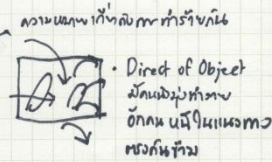 ความหมายเกี่ยวกับการทำร้ายกัน
• Direct of Object
มีคนนึงมุ่งทำลาย
อีกคน หนีในแนวทาง
ตรงกันข้าม